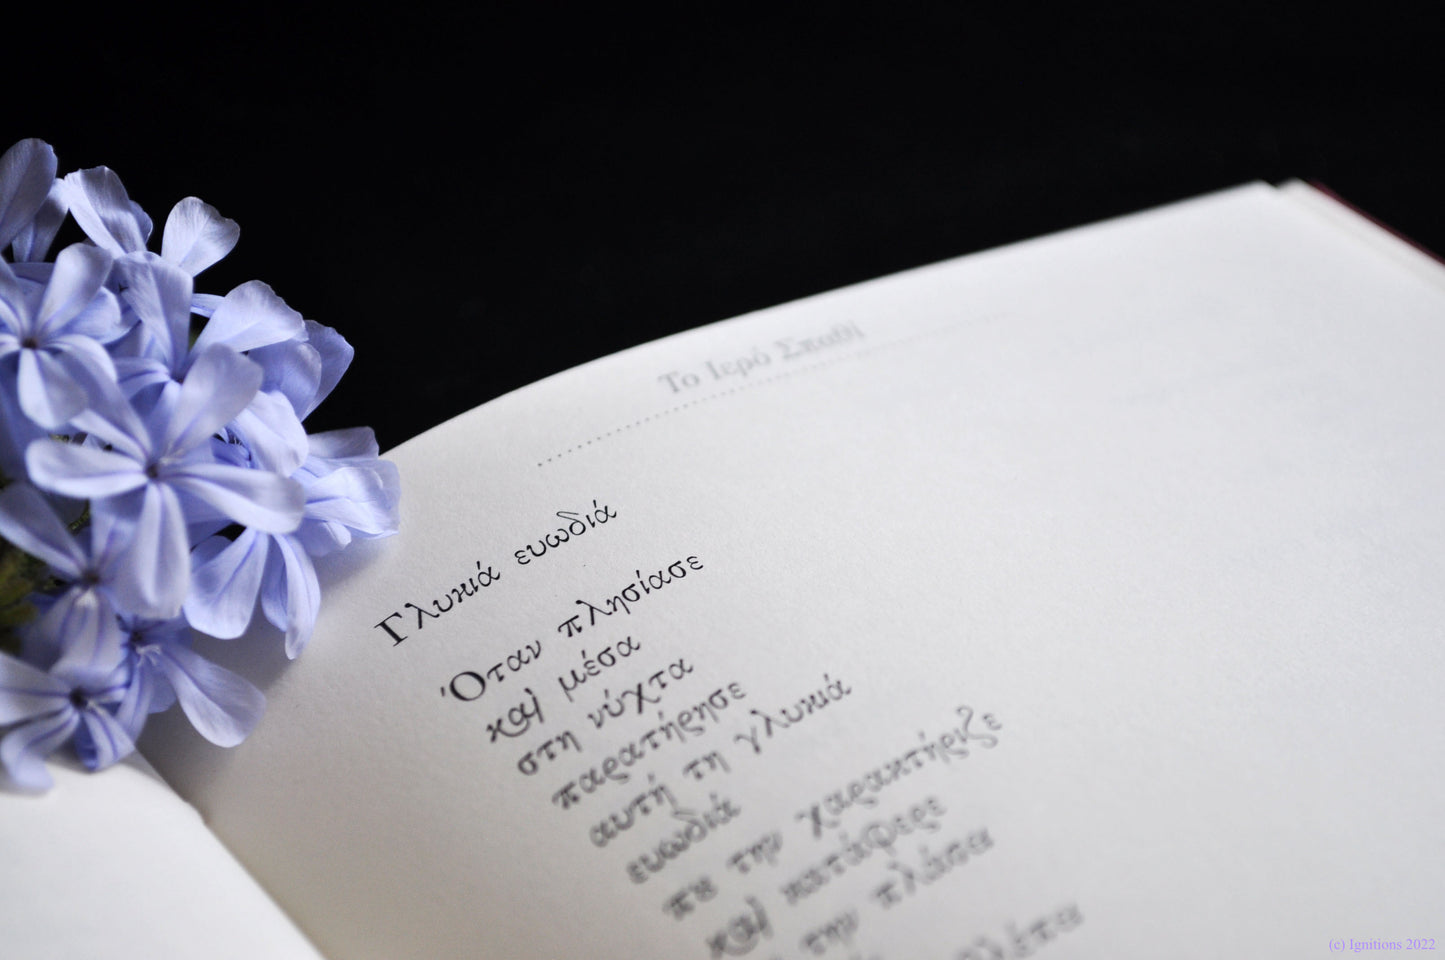 Το Ιερό Σπαθί
Γλυκιά ευωδιά
Όταν πλησίασε
και μέσα
στη νύχτα
παρατήρησε
αυτή τη γλυκιά
ευωδιά
που την χαρακτήριζε
και κατάφερε
την πλάσα
(c) Ignitions 2022